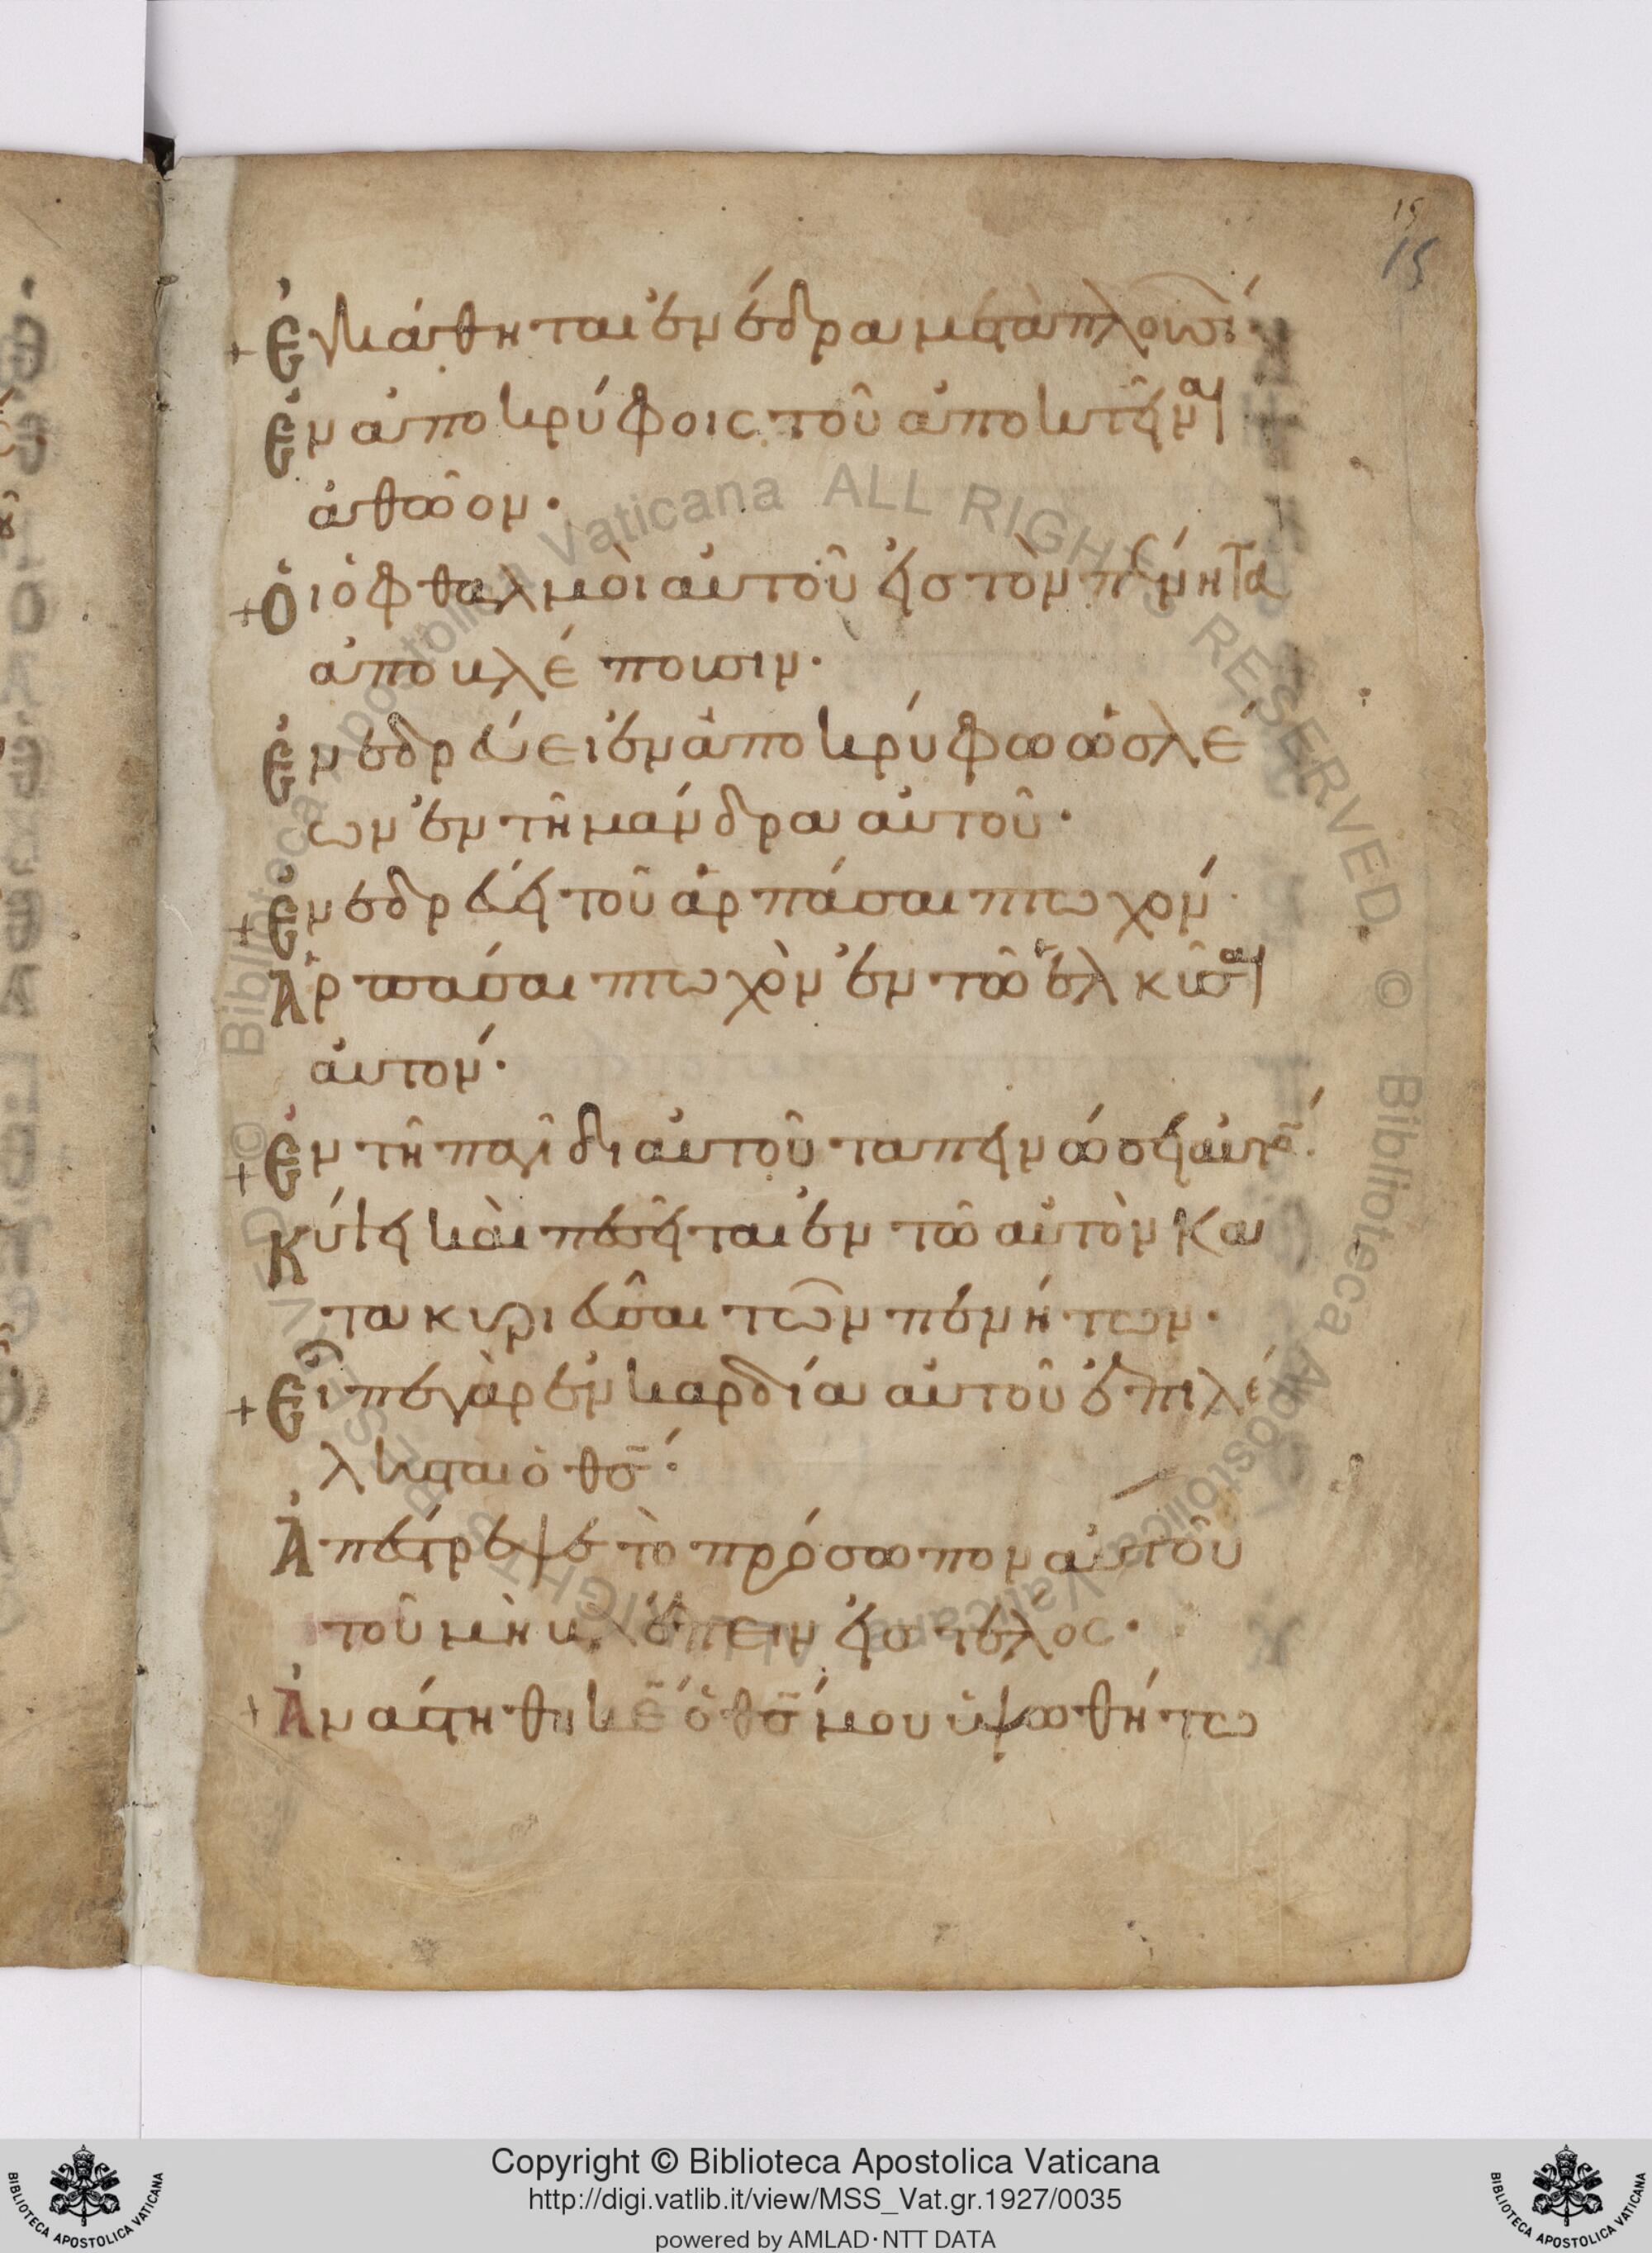 15
15
+ Ἐγκάθηται ἐν ἐνέδρα μετὰ πλουσί
Ἐν ἀποκρύφοις τοῦ ἀποκτεῖναι
ἀθῶον·
+ Ὁι ὀφθαλμὸι αὐτοῦ εἰσ τὸν πένητα
ἀποβλέπουσιν·
Ἐνεδρέυει ἐν ἀποκρύφω ὡσ λέ
ων ἐν τῆ μάνδρα αὐτοῦ·
+ Ἐνεδρέυει τοῦ ἁρπάσαι πτωχόν·
Ἁρπάσαι πτωχὸν ἐν τῶ ἑλκῦσαι
ἀυτον·
+ Ἐν τῆ παγίδι αὐτοῦ ταπεινώσει αὐτὸ
Κύψει καὶ πεσεῖται ἐν τῶ αὐτὸν κα
τακυριεῦσαι τῶν πενήτων·
+ Εἶπε γὰρ ἐν καρδία αὐτοῦ ἐπιλέ
λησται ὁ θσ·
Ἀπέστρεψε τὸ πρόσωπον αὐτοῦ
τοῦ μὴ βλέπειν εἰσ τέλος·
+ Ἀνάστηθι κε ὁ θσ μου ὑψωθήτω
Copyright © Biblioteca Apostolica Vaticana
http://digi.vatlib.it/view/MSS_Vat.gr.1927/0035
powered by AMLAD·NTT DATA
BIBLIOTECA APOSTOLICA VATICANA
BIBLIOTECA APOSTOLICA VATICANA